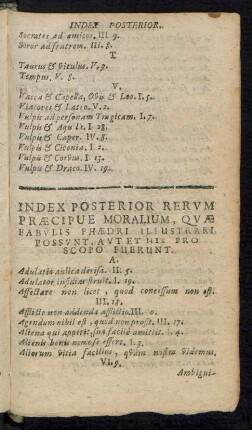 INDEX POSTERIOR.
Socrates ad amicos. III. 9.
Soror ad fratrem. III. 8.
T
Taurus & vitulus. V. 9.
Tempus. V. 8.
V.
Vacca & Capella, Ovis & Leo. I. 5.
Viatores & Latro. V. 2.
Vulpis ad personam Tragicam. I. 7.
Vulpis & Aquila. I. 28.
Vulpis & Caper. IV. 8.
Vulpis & Ciconia. I. 2
Vulpis & Corvus. I. 13.
Vulpis & Draco. IV. 19.
INDEX POSTERIOR RERVM
PRÆCIPVE MORALIVM, QVÆ
FABVLIS PHÆDRI ILLVSTRARI
POSSVNT, AVT ET IIS PRO
SCOPO FUERUNT.
A.
Adulatio aulica derisa. II. 5.
Adulator insidias struit. I. 19.
Affectare non licet, quod concessum non est.
III. 18.
Afflicto non addenda afflictio. III. 0.
Agendum nihil est, quod non prosit. III. 17.
Aliena qui appetit, sua facile amittit. I. 4.
Alienis bonis nemo se efferet. I. 3.
Aliorum vitia facilius, quam nostra videmus,
VI. 9.
Ambigui-